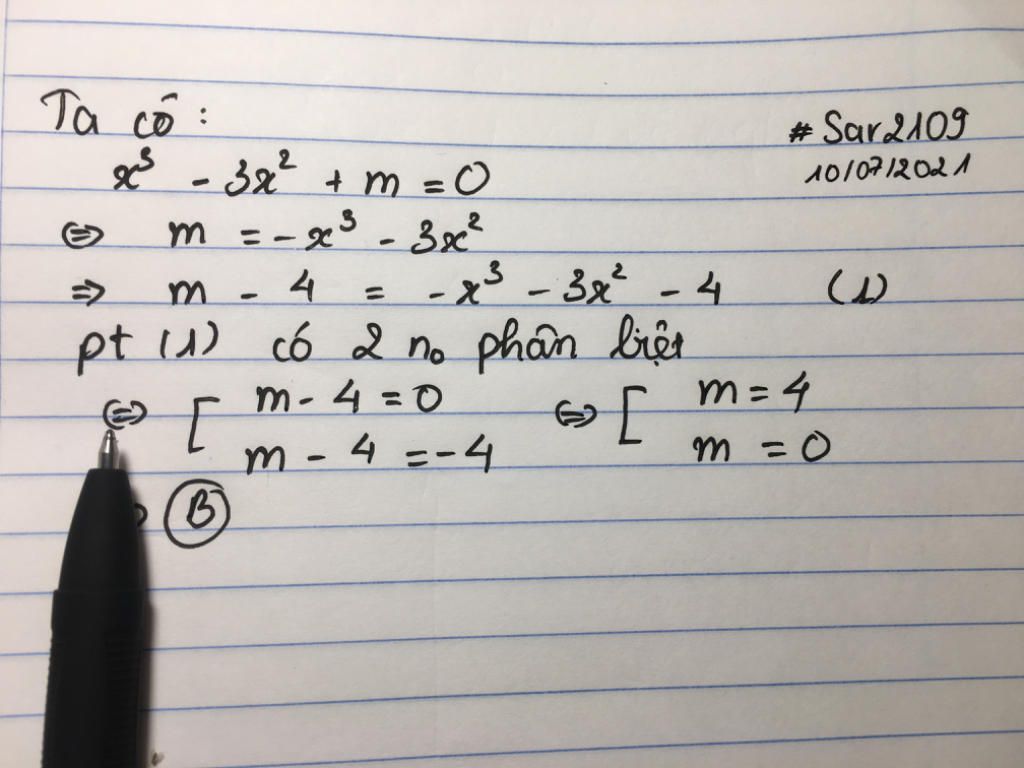 Ta có:
#Sar2109
10/07/2021
x³ - 3x² + m = 0
⇔ m = -x³ - 3x²
⇒ m - 4 = -x³ - 3x² - 4 (1)
pt (1) có 2 n₀ phân biệt
⇔ [ m - 4 = 0 ⇔ [ m = 4
m - 4 = -4 m = 0
B